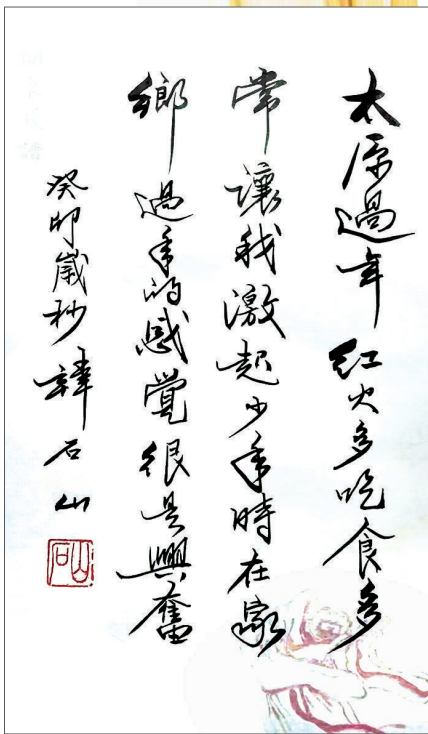 太原過年红火多吃食多
常讓我激起少年時在家
鄉過年的感覺很是興奮
癸卯歲杪韓石山
石山